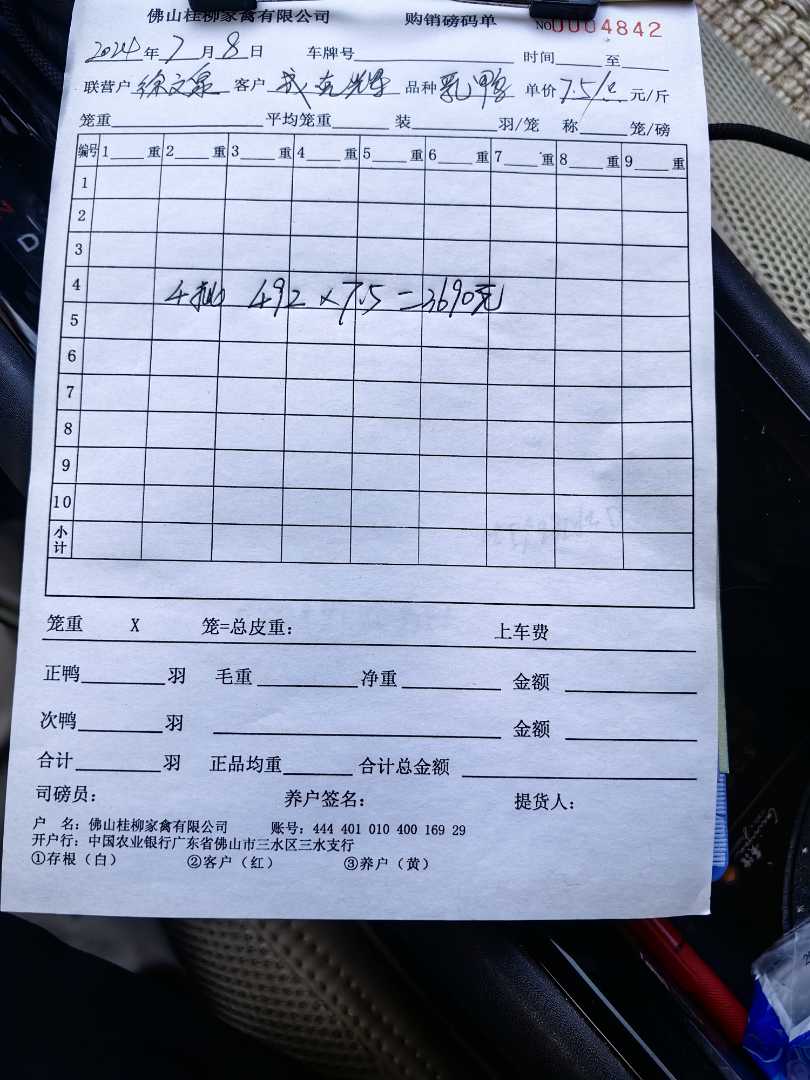 佛山桂柳家禽有限公司 购销磅码单 №0004842
2024年7月8日 车牌号 时间 至
联营户 徐文泉 客户 品种 乳鸭 单价 7.5/ 元/斤
笼重 平均笼重 装 羽/笼 称 笼/磅
编号 1 重 2 重 3 重 4 重 5 重 6 重 7 重 8 重 9 重
1
2
3
4
4 492 × 7.5 = 3690元
5
6
7
8
9
10
小计
笼重 X 笼=总皮重: 上车费
正鸭 羽 毛重 净重 金额
次鸭 羽 金额
合计 羽 正品均重 合计总金额
司磅员: 养户签名: 提货人:
户 名: 佛山桂柳家禽有限公司 账号: 444 401 010 400 169 29
开户行: 中国农业银行广东省佛山市三水区三水支行
①存根（白） ②客户（红） ③养户（黄）
D